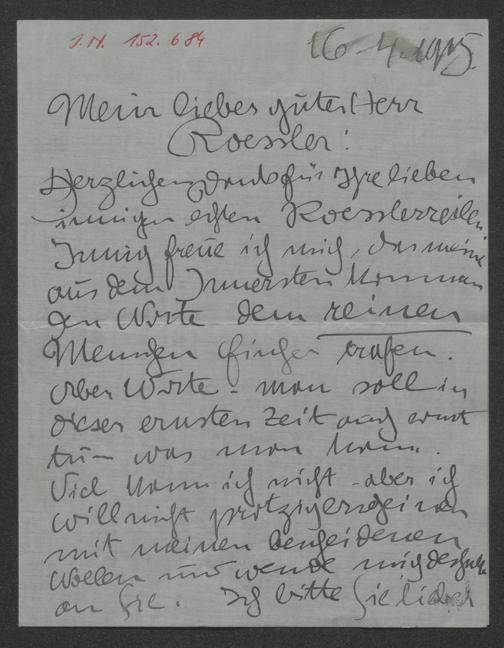 J.N. 152.684
16-4.1915.
Mein lieber guter Herr
Roessler!
Herzlichen Dank für Ihre lieben
innigen echten Roesslerzeilen
Innig freue ich mich, das meine
aus dem Innersten komman
den Worte dem reinen
Menschen trafen.
Aber Worte - man soll in
dieser ernsten Zeit auch ernst
tun - was man kann.
Viel kann ich nicht - aber ich
will nicht protzig erscheinen
mit meinen bescheidenen
Wollen und wende mich deshalb
an Sie. Ich bitte Sie lieber